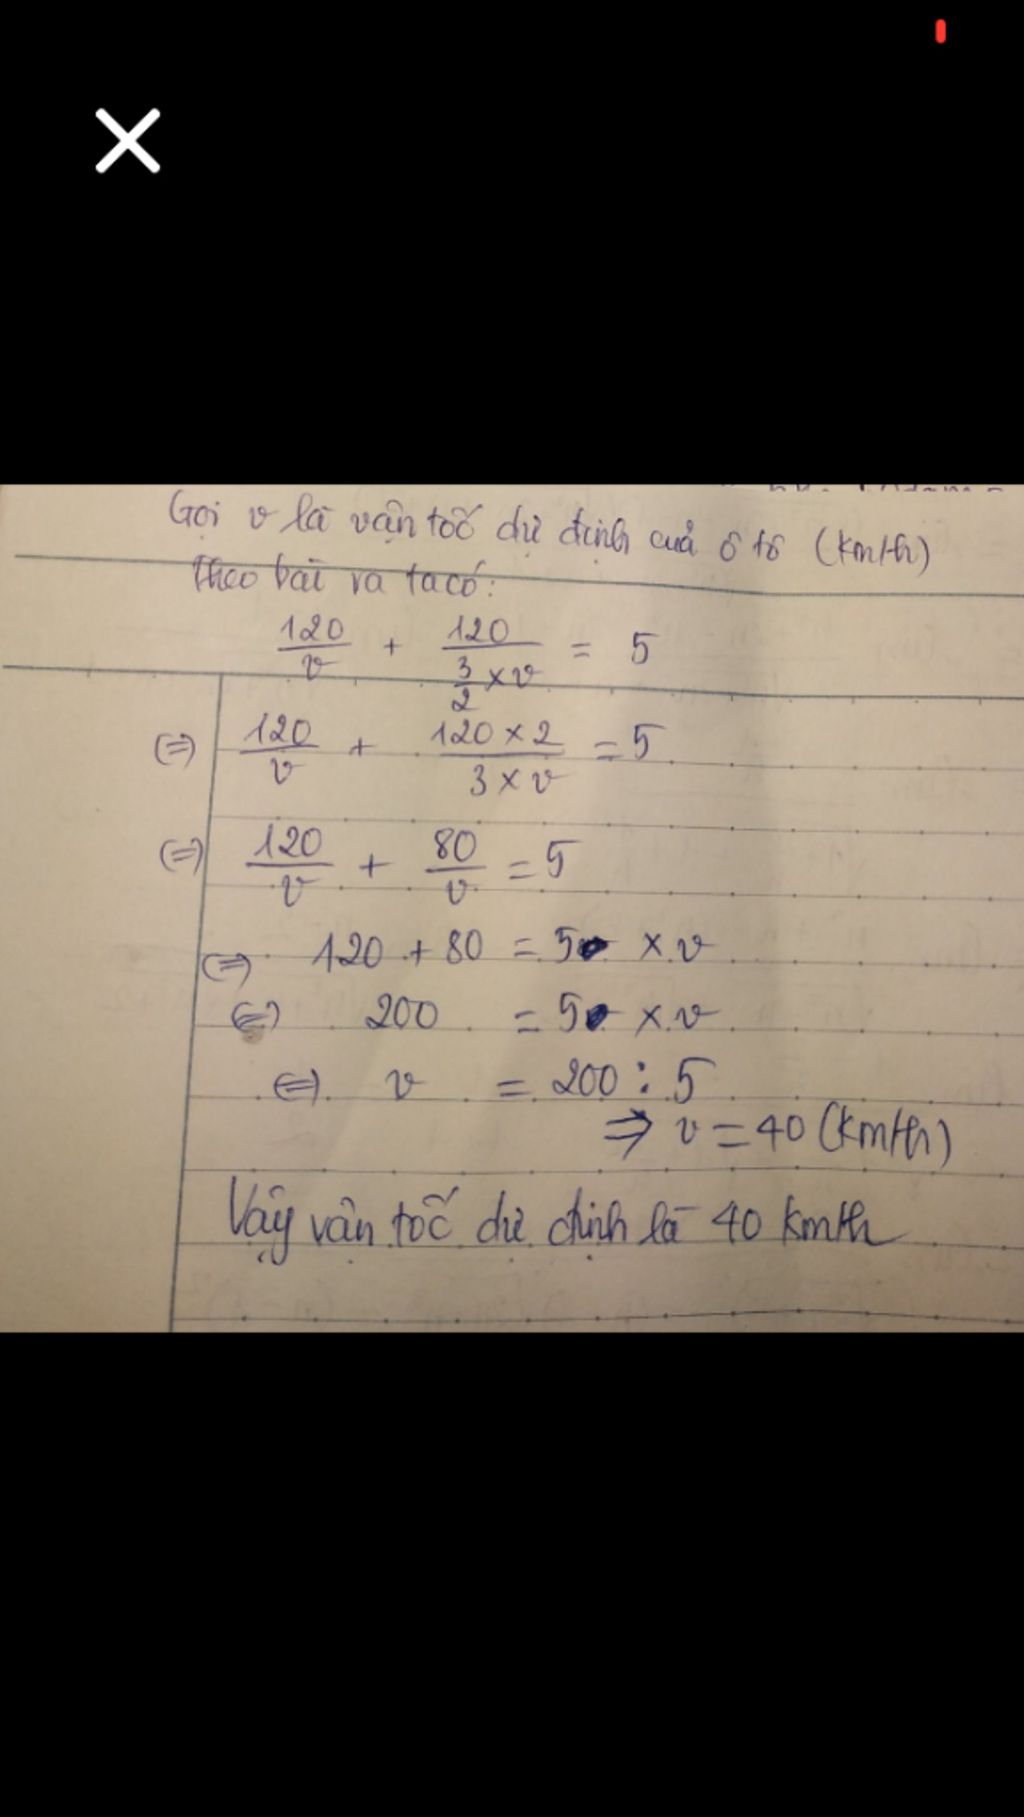 Gọi v là vận tốc dự định của ô tô (km/h)
Theo bài ra ta có:
120/v + 120/(3/2 × v) = 5
(=) 120/v + 120 × 2/3 × v = 5
(=) 120/v + 80/v = 5
(=) 120 + 80 = 5 × v
(=) 200 = 5 × v
(=) v = 200 : 5
⇒ v = 40 (km/h)
Vậy vận tốc dự định là 40 km/h